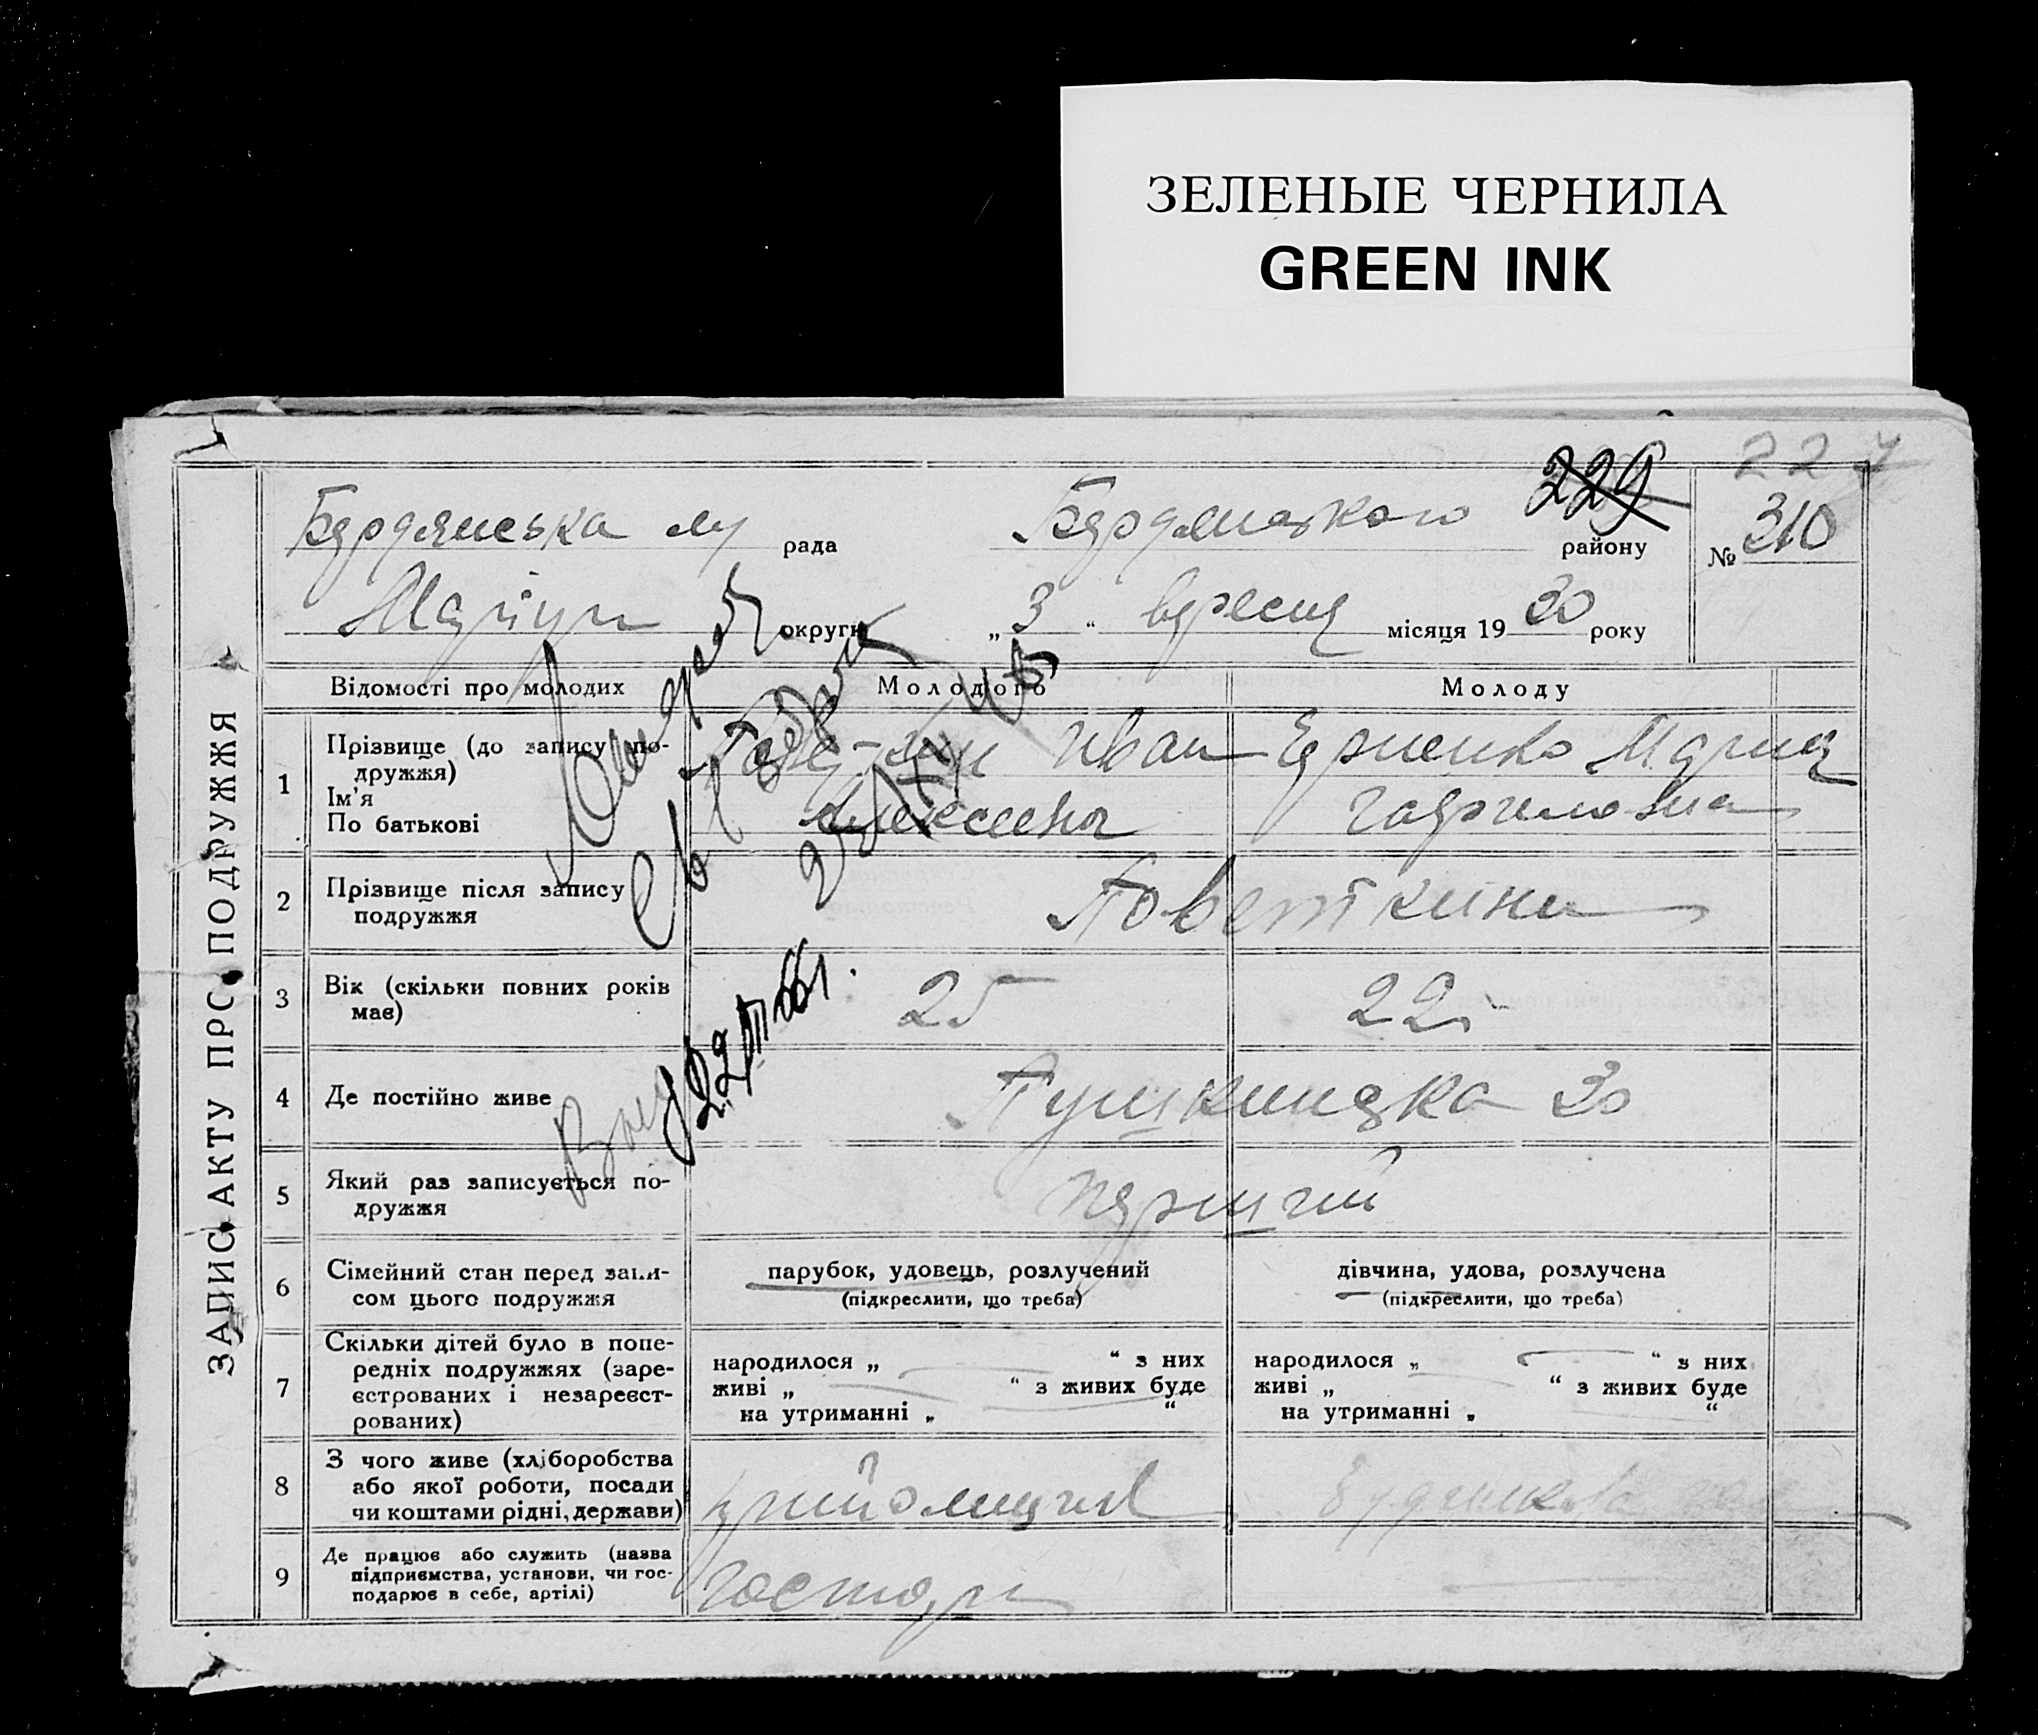 ЗЕЛЕНЫЕ ЧЕРНИЛА
GREEN INK
227
229
Бердянська рада Бердянського району № 310
Маріуп округи „ 3 “ вересня місяця 19 30 року
ЗАПИС АКТУ ПРО ПОДРУЖЖЯ
Відомості про молодих Молодого Молоду
1 Прізвище (до запису по-
дружжя)
Ім'я
По батькові
Иван Ерменко Мария
Алексеев Гавриловна
2 Прізвище після запису
подружжя
Поветкини
3 Вік (скільки повних років
має)
25 22
4 Де постійно живе
Пушкинська 30
5 Який раз записується по-
дружжя
перший
6 Сімейний стан перед запи-
сом цього подружжя
парубок, удовець, розлучений
(підкреслити, що треба)
дівчина, удова, розлучена
(підкреслити, що треба)
7 Скільки дітей було в попе-
редніх подружжях (заре-
єстрованих і незареєст-
рованих)
народилося „ “ з них
живі „ “ з живих буде
на утриманні „ “
народилося „ “ з них
живі „ “ з живих буде
на утриманні „ “
8 З чого живе (хліборобства
або якої роботи, посади
чи коштами рідні, держави)
9 Де працює або служить (назва
підприємства, установи, чи гос-
подарює в себе, артілі)